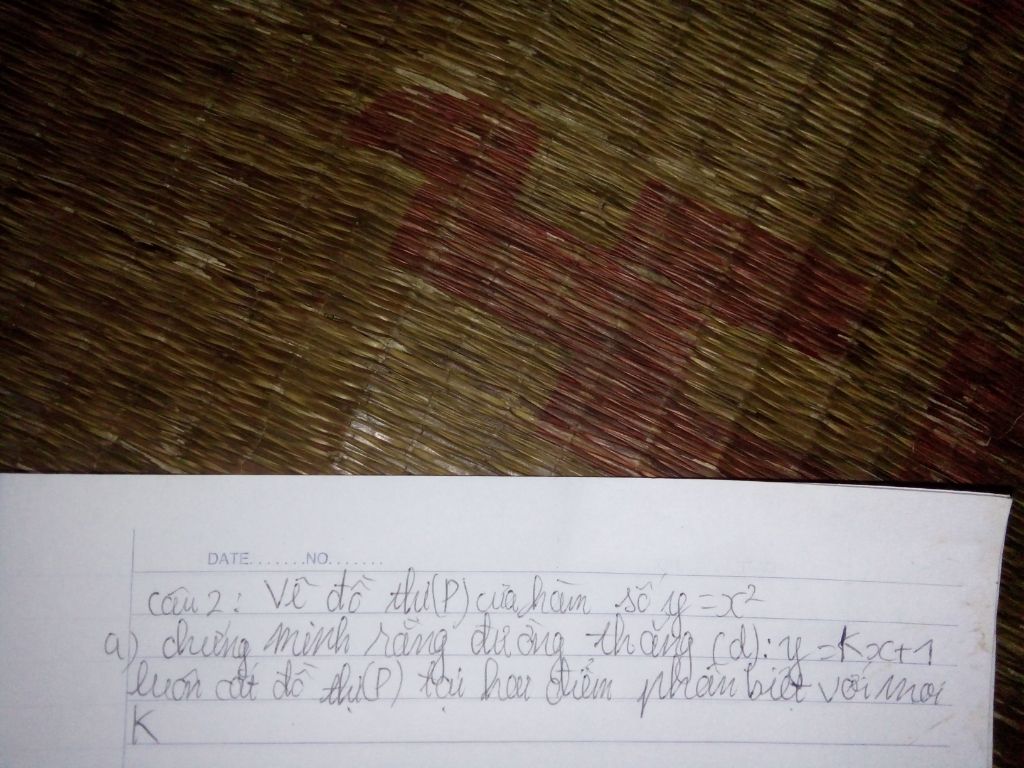 DATE.......NO.......
Câu 2: Vẽ đồ thị (P) của hàm số y = x²
a) chứng minh rằng đường thẳng (d): y = Kx + 1
luôn cắt đồ thị (P) tại hai điểm phân biệt với mọi
K